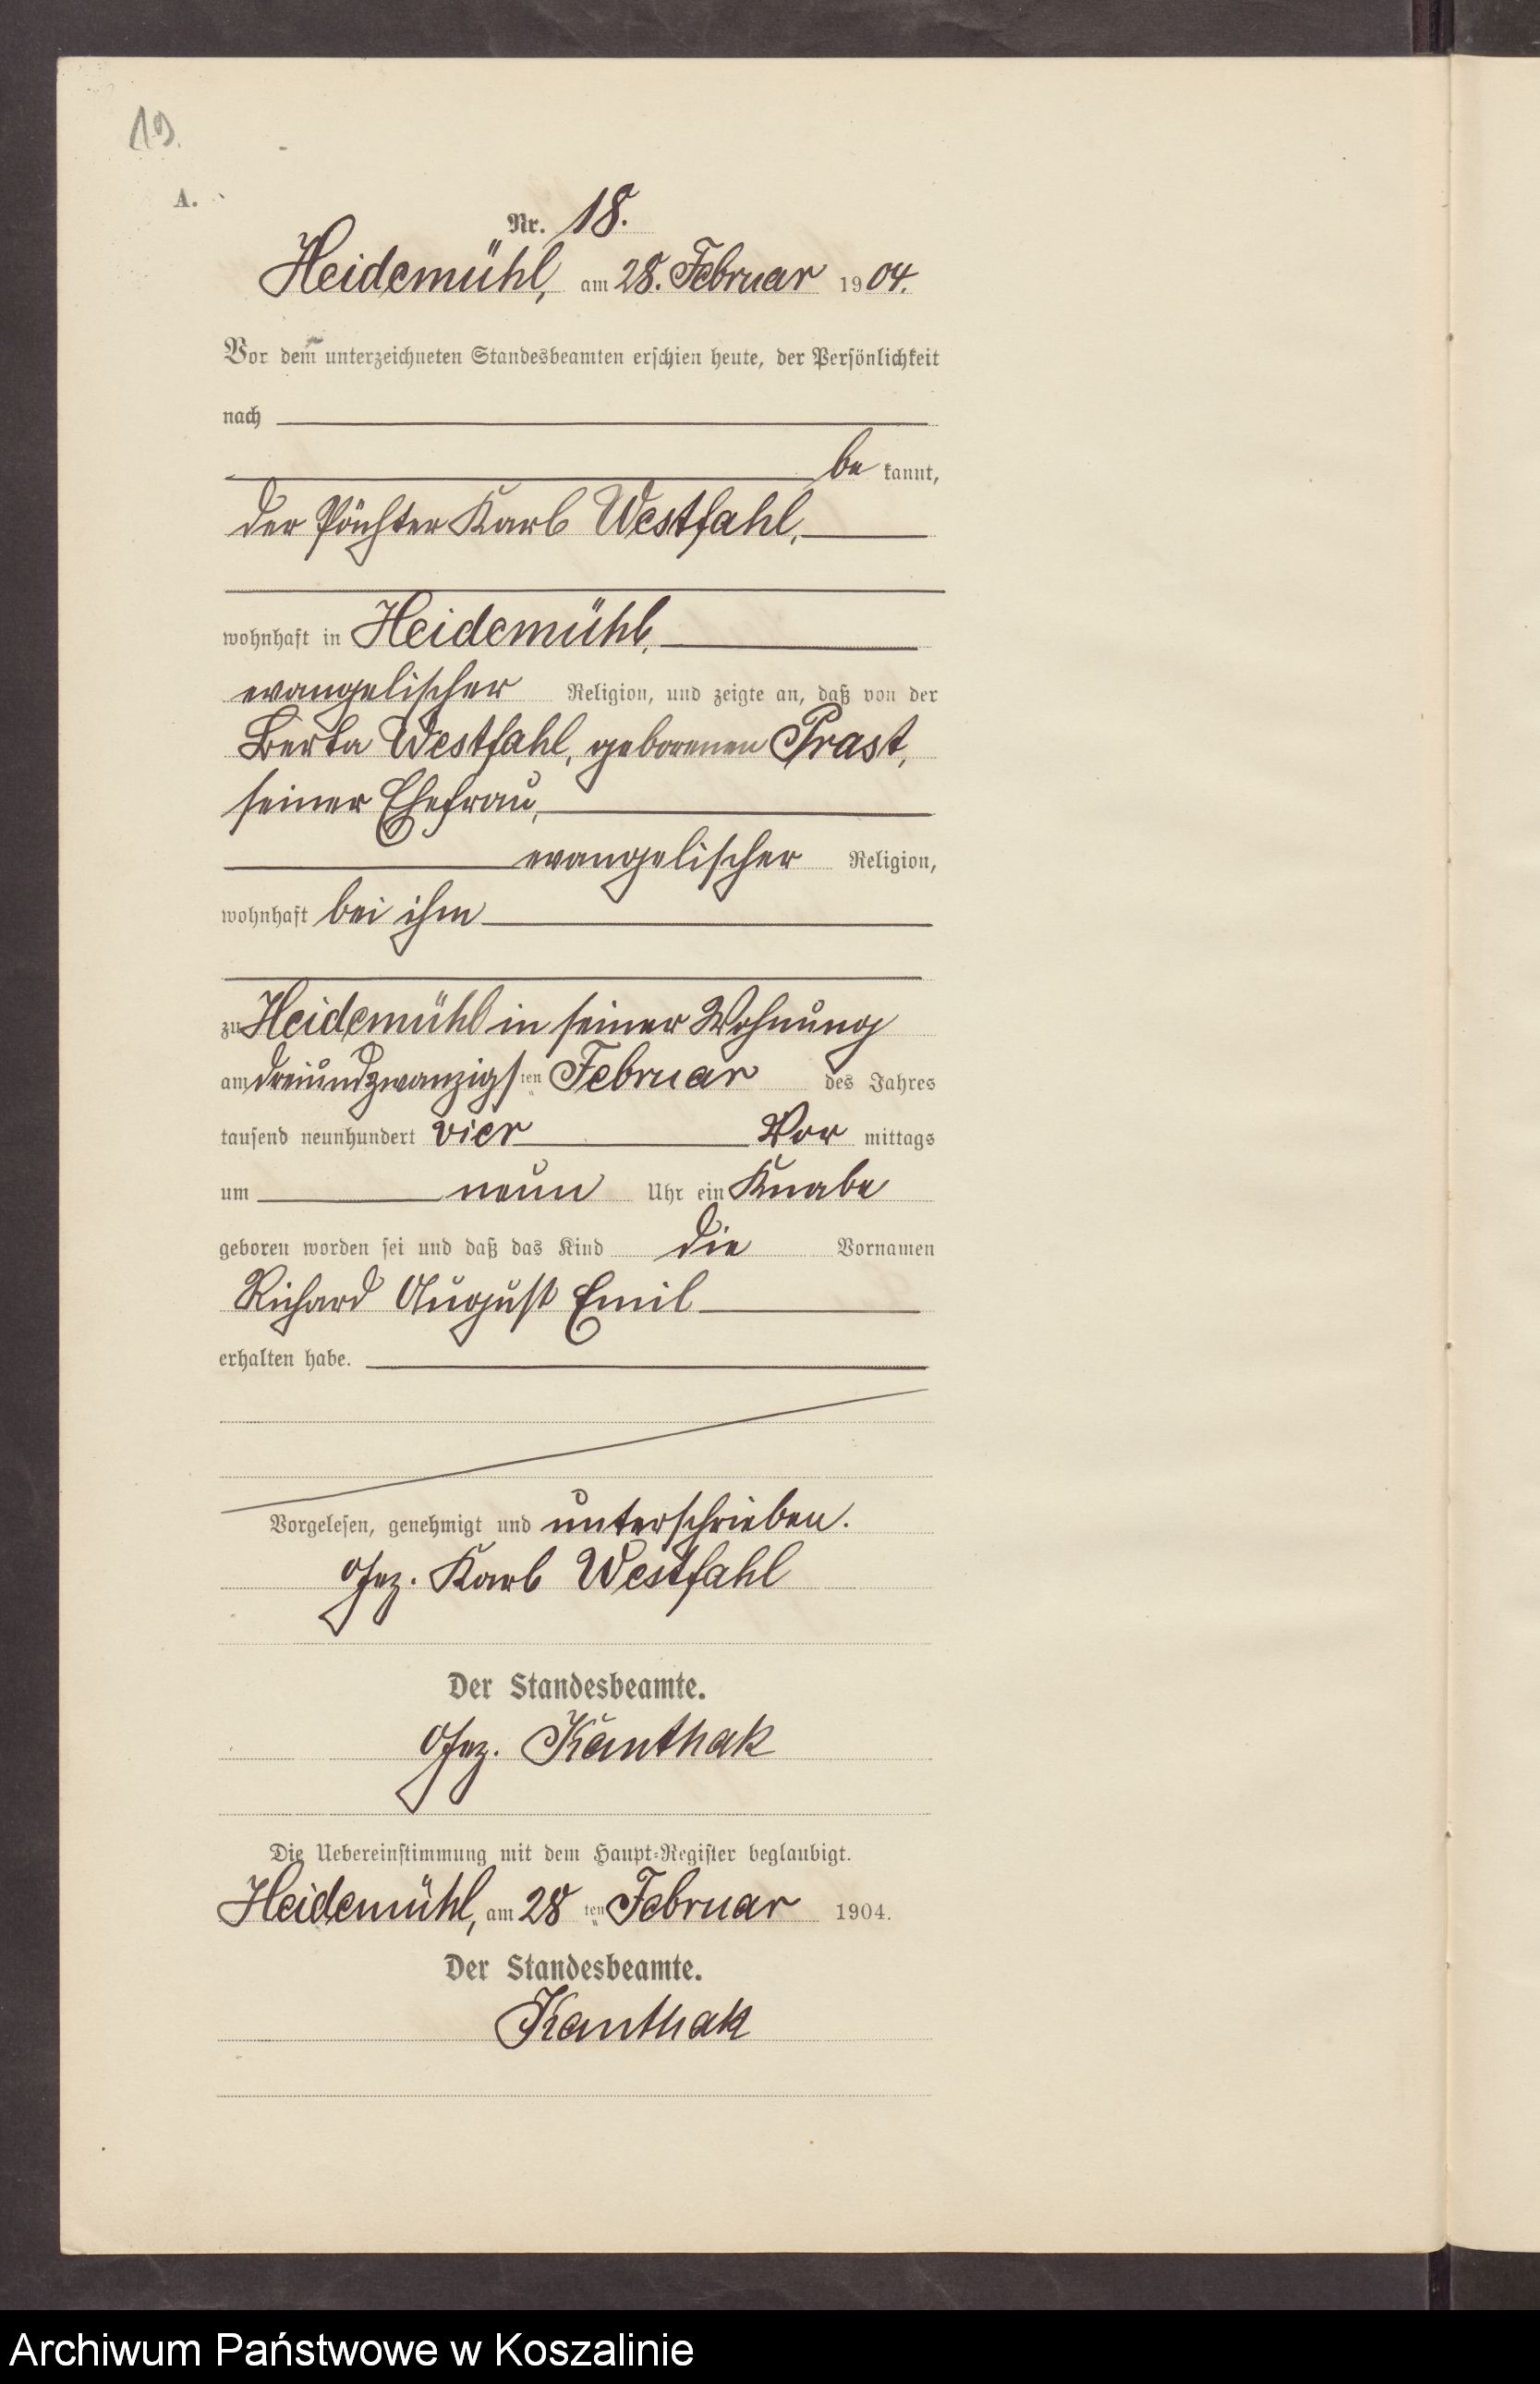 19.
A.
Nr. 18.
Heidemühl, am 28. Februar 1904.
Vor dem unterzeichneten Standesbeamten erschien heute, der Persönlichkeit
nach
be kannt,
der Pächter Karl Westfahl,
wohnhaft in Heidemühl,
evangelischer Religion, und zeigte an, daß von der
Berta Westfahl, geborenen Prast,
seiner Ehefrau,
evangelischer Religion,
wohnhaft bei ihm
zu Heidemühl in seiner Wohnung
am dreiundzwanzigsten Februar des Jahres
tausend neunhundert vier Vor mittags
um neun Uhr ein Knabe
geboren worden sei und daß das Kind die Vornamen
Richard August Emil
erhalten habe.
Vorgelesen, genehmigt und unterschrieben.
Gez. Karl Westfahl
Der Standesbeamte.
Gez. Kanthak
Die Uebereinstimmung mit dem Haupt-Register beglaubigt.
Heidemühl, am 28 ten Februar 1904.
Der Standesbeamte.
Kanthak
Archiwum Państwowe w Koszalinie